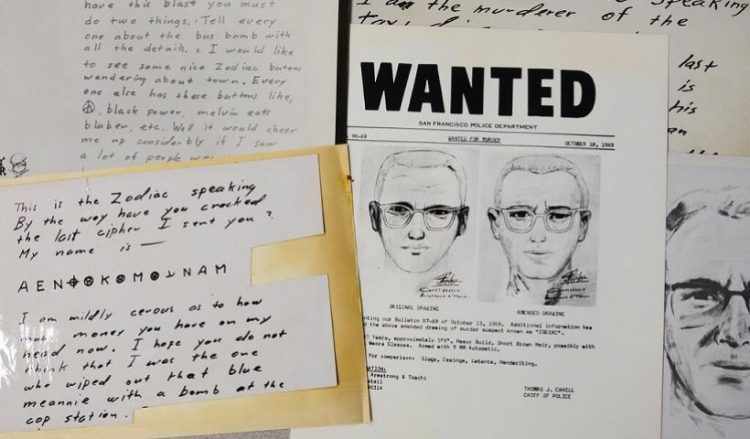 have this blast you must
do two things. Tell every
one about the bus bomb with
all the details. I would like
to see some nice Zodiac butons
wandering about town. Every
one else has these buttons like,
☮, black power, melvin eats
blubber, etc. Well it would cheer
me up considerbly if I saw
a lot of people
This is the Zodiac speaking
By the way have you cracked
the last cipher I sent you?
My name is —
AEN⊕⊗K⊗M⊗⅃NAM
I am mildly cerous as to how
much money you have on my
head now. I hope you do not
think that I was the one
who wiped out that blue
meannie with a bomb at the
cop station.
speaking
I am the murderer of the
last
is
his
WANTED
SAN FRANCISCO POLICE DEPARTMENT
90-69 WANTED FOR MURDER OCTOBER 18, 1969
ORIGINAL DRAWING AMENDED DRAWING
our Bulletin 87-69 of October 13, 1969. Additional information has
the above amended drawing of murder suspect known as "ZODIAC".
Years, approximately 5'8", Heavy Build, Short Brown Hair, possibly with
Wears Glasses. Armed with 9 MM Automatic.
for comparison: Slugs, Casings, Latents, Handwriting.
Armstrong & Toschi
THOMAS J. CAHILL
CHIEF OF POLICE